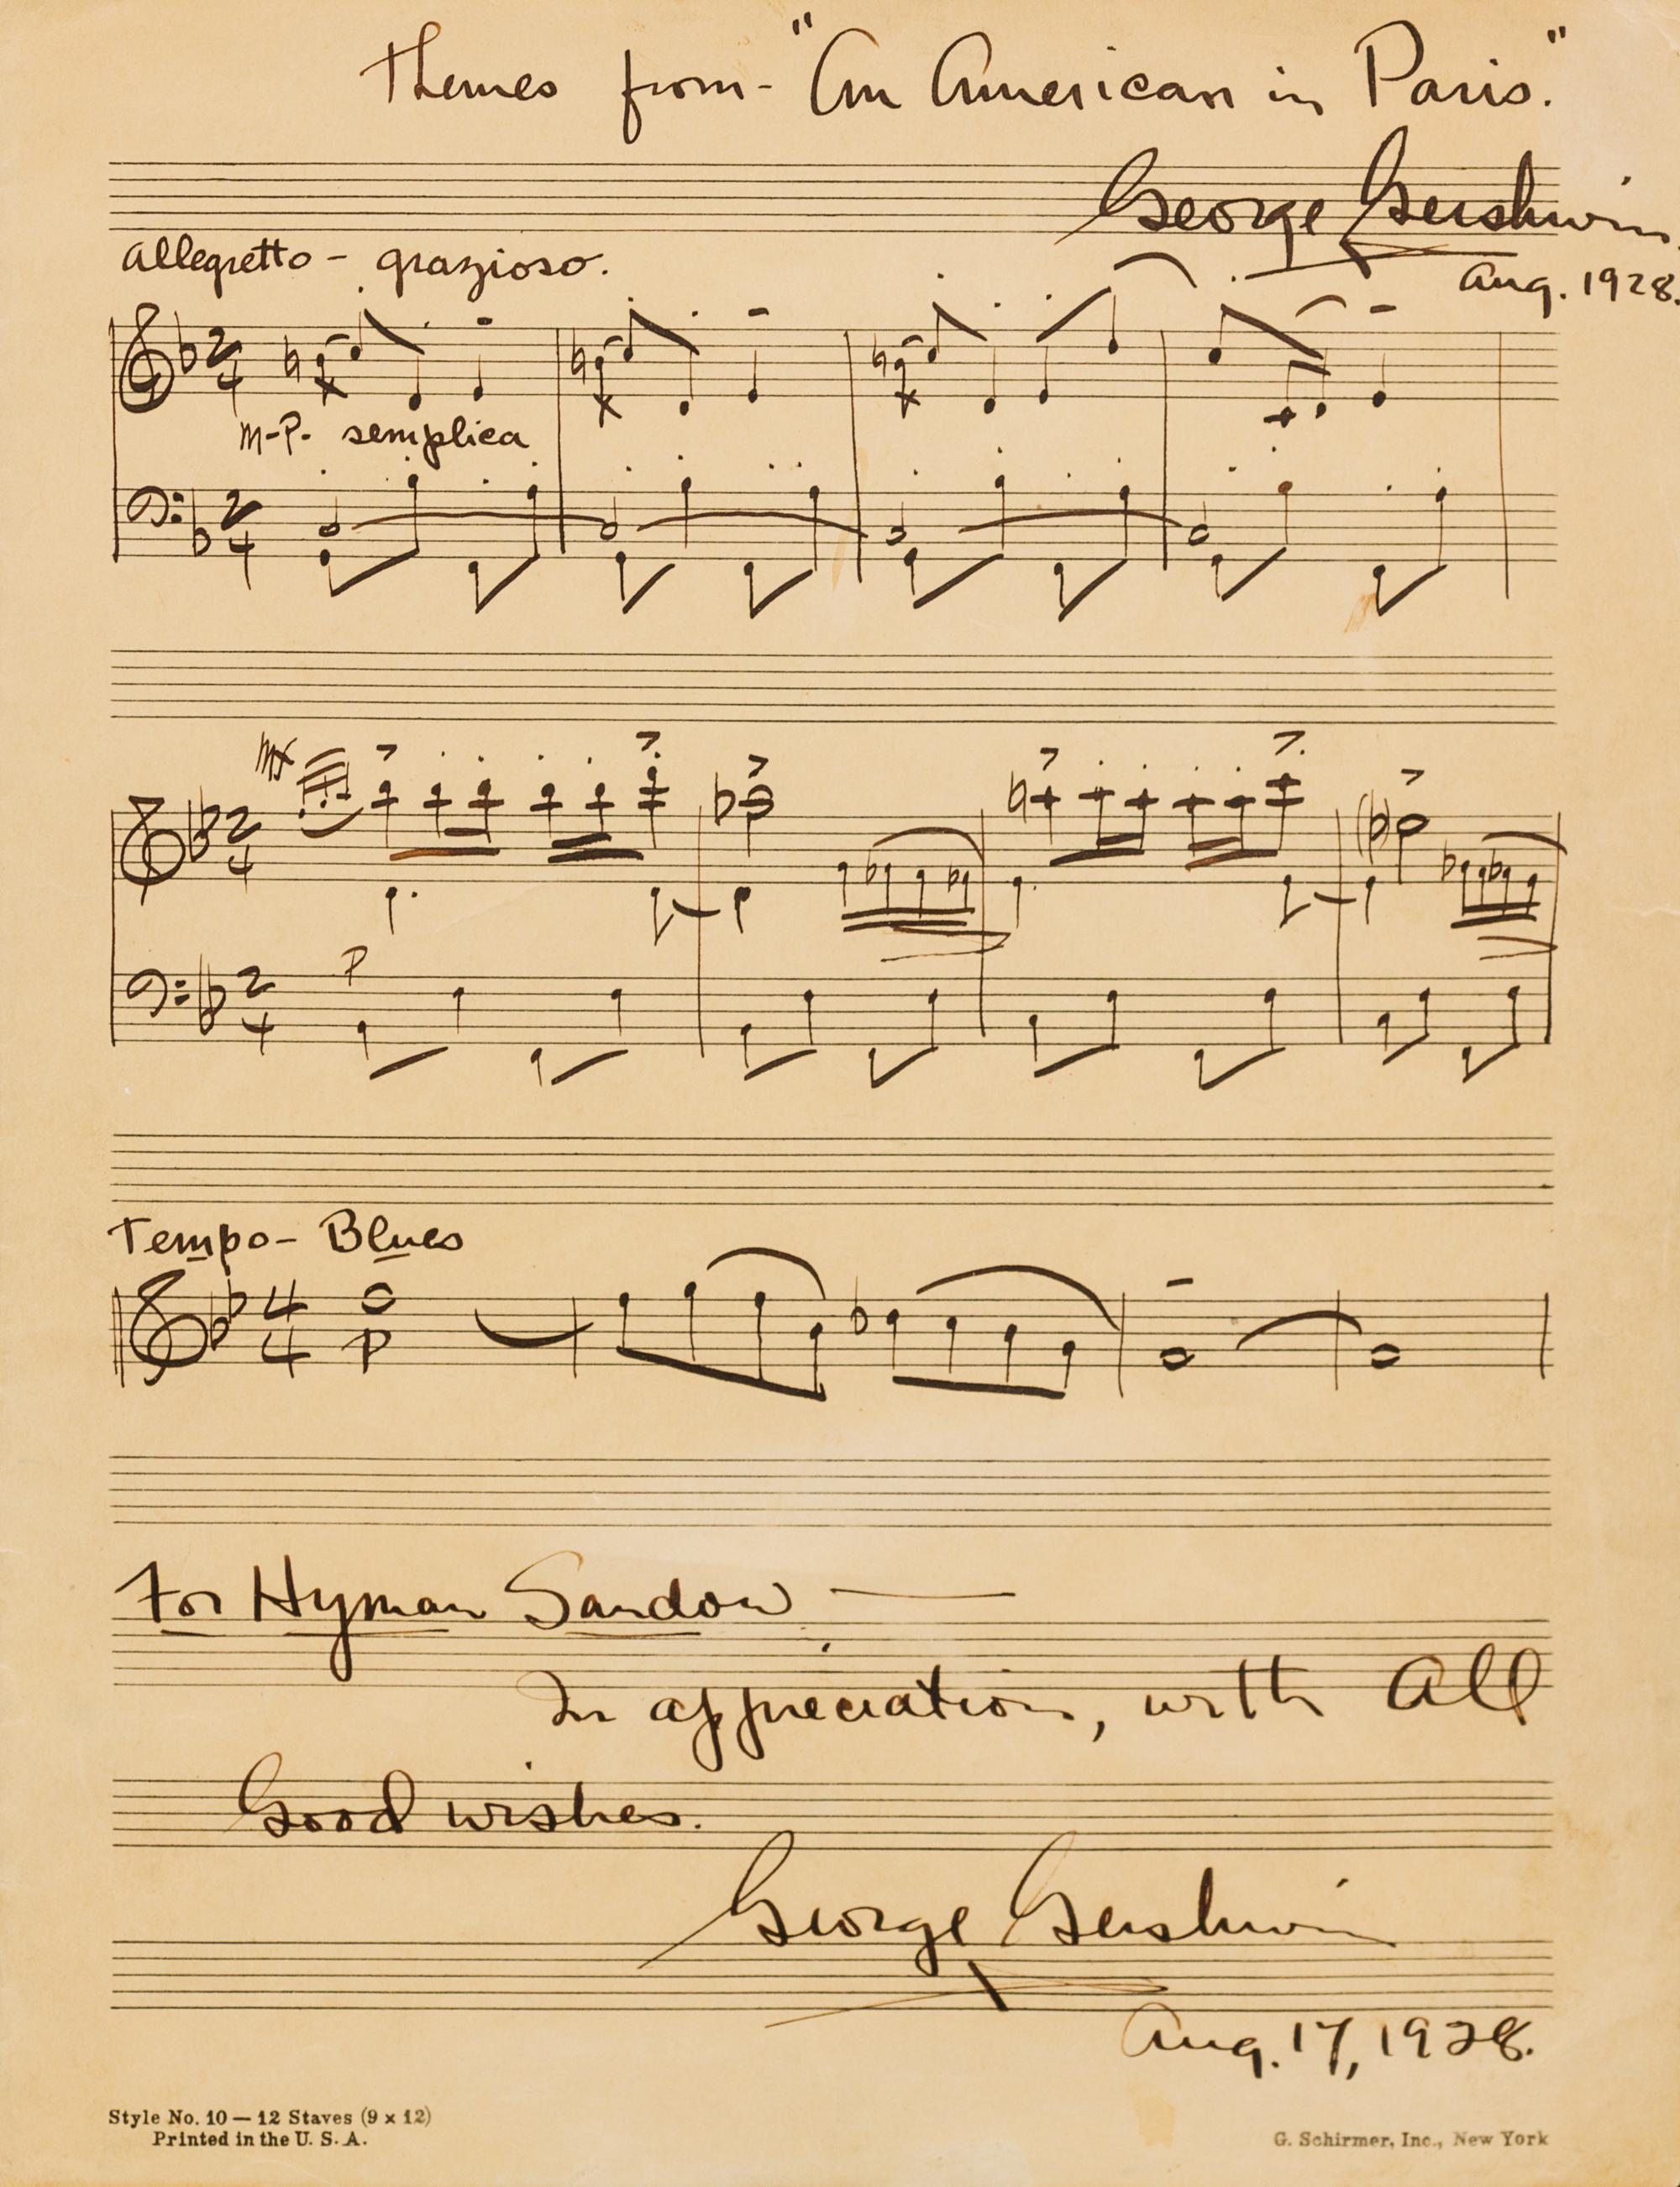 Themes from - "An American in Paris."
George Gershwin.
Aug. 1928.
Allegretto - grazioso.
2/4
m-p- semplica
2/4
2/4
p
2/4
Tempo - Blues
4/4
p
For Hyman Sandow —
In appreciation, with all
Good wishes.
George Gershwin
Aug. 17, 1928.
Style No. 10 — 12 Staves (9 x 12)
Printed in the U. S. A.
G. Schirmer, Inc., New York